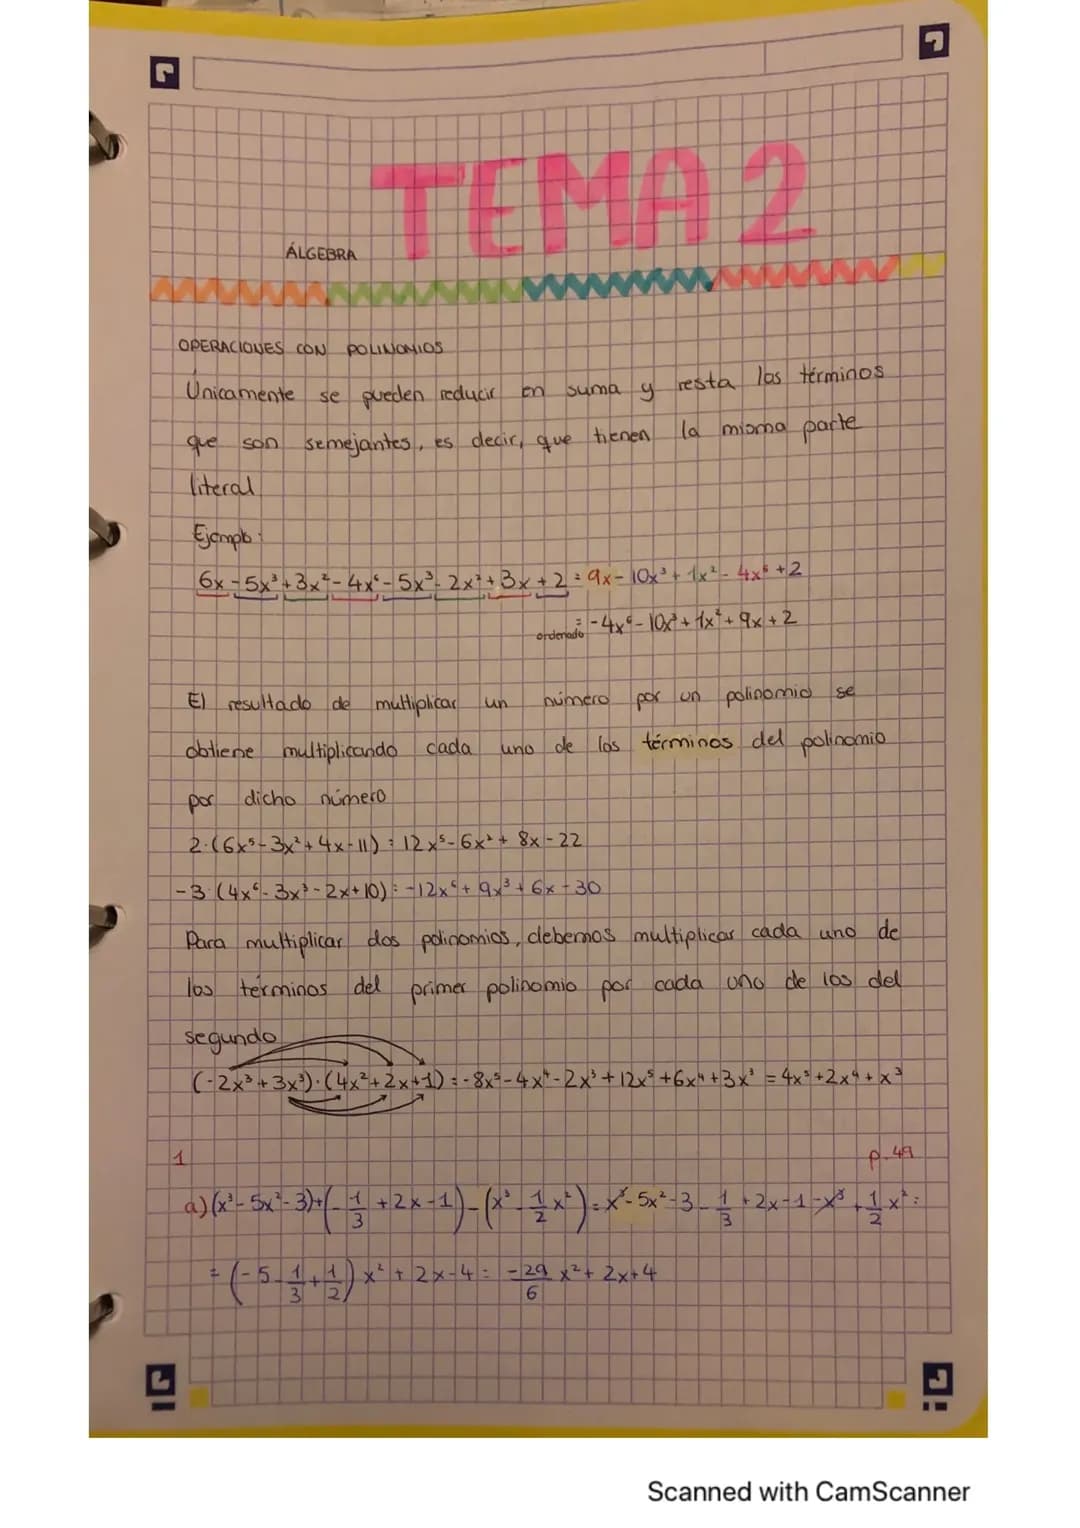 TEMA 2
ÁLGEBRA
OPERACIONES CON POLINOMIOS
Únicamente se pueden reducir en suma y resta los términos
que son semejantes, es decir, que tienen la misma parte
literal
Ejemplo:
6x-5x³+3x²-4x⁶-5x³-2x²+3x+2=9x-10x³+1x²-4x⁶+2
ordenado = -4x⁶-10x³+1x²+9x+2
El resultado de multiplicar un número por un polinomio se
obtiene multiplicando cada uno de los términos del polinomio
por dicho número
2·(6x⁵-3x²+4x-11)=12x⁵-6x²+8x-22
-3·(4x⁶-3x³-2x+10)=-12x⁶+9x³+6x-30
Para multiplicar dos polinomios, debemos multiplicar cada uno de
los términos del primer polinomio por cada uno de los del
segundo
(-2x³+3x³)·(4x²+2x+1)=-8x⁵-4x⁴-2x³+12x⁵+6x⁴+3x³=4x⁵+2x⁴+x³
1 p.49
a)(x³-5x²-3)+(-1/3+2x-1)-(x³-1/2x²)=x³-5x²-3-1/3+2x-1-x³+1/2x²=
=(-5-1/3+1/2)x²+2x-4=-29/6x²+2x+4
Scanned with CamScanner